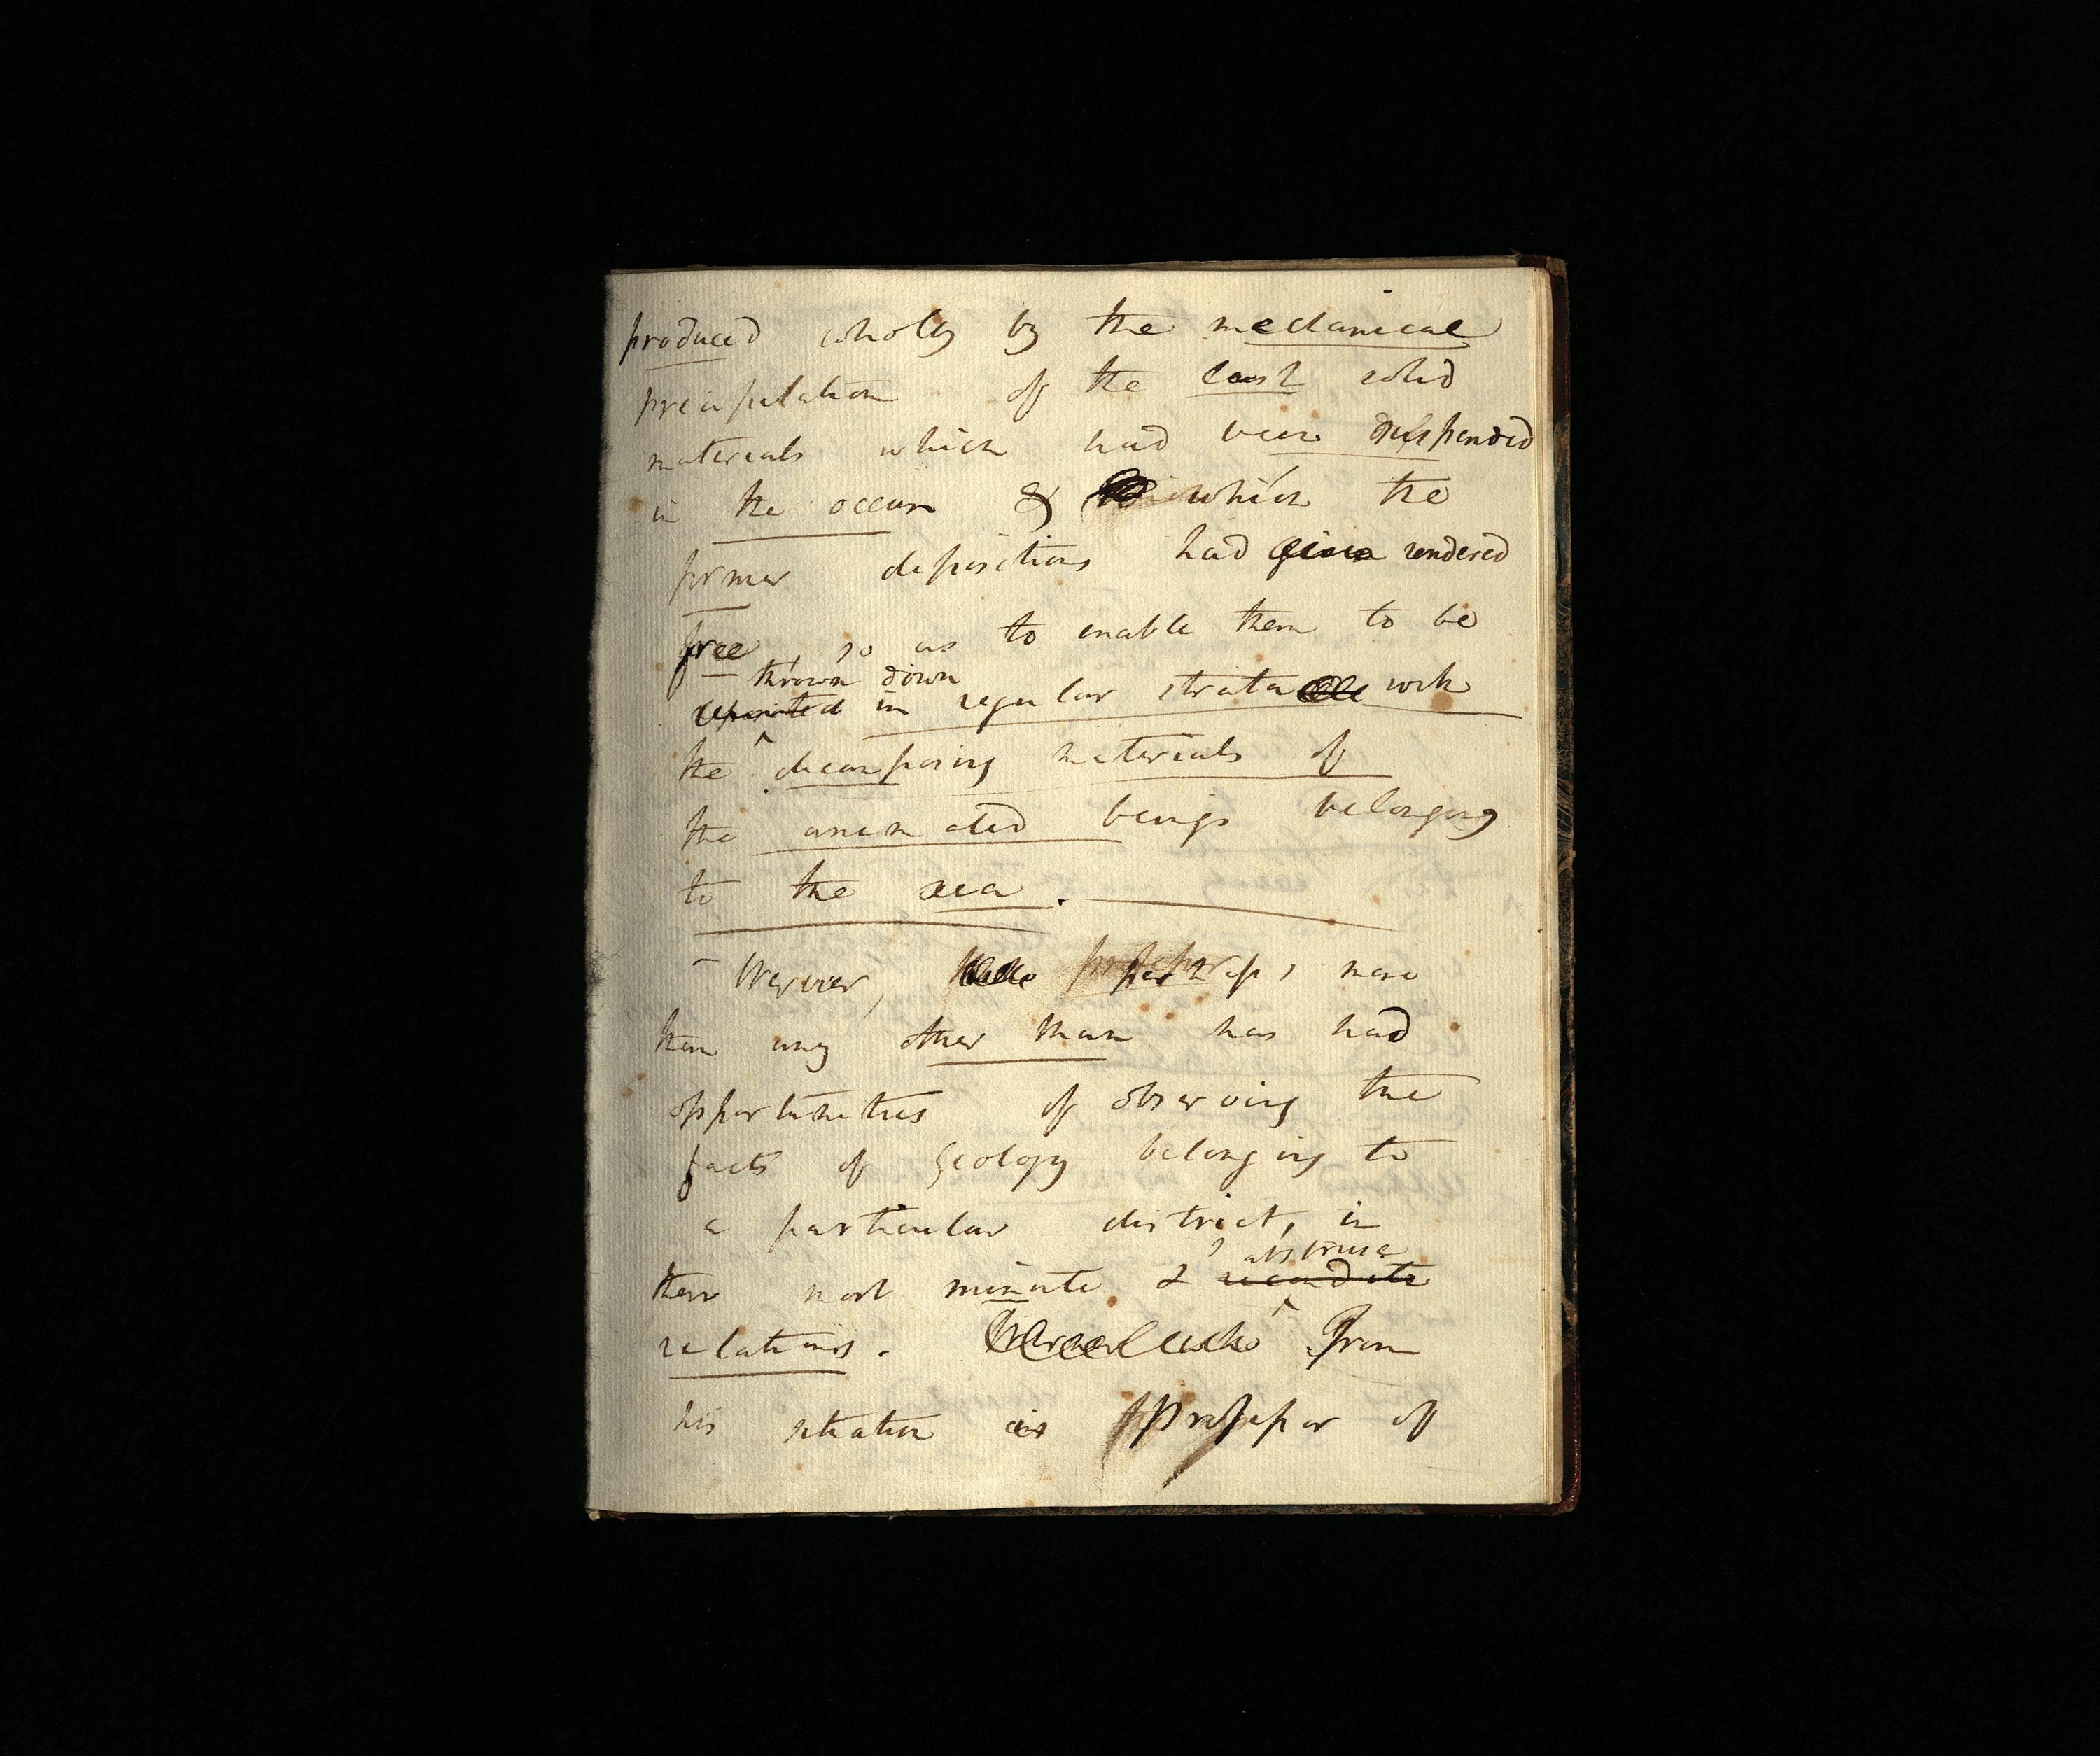 produced wholly by the mechanical
precipitation of the last solid
materials which had been suspended
in the ocean & which the
former depositions had given rendered
free, so as to enable them to be
thrown down
deposited in regular strata with
the decomposing materials of
the animated beings belonging
to the sea.
Werner, perhaps, more
than any other man has had
opportunities of observing the
facts of Geology belonging to
a particular district, in
abstruse
their most minute & recondite
relations. From
his situation as Professor of